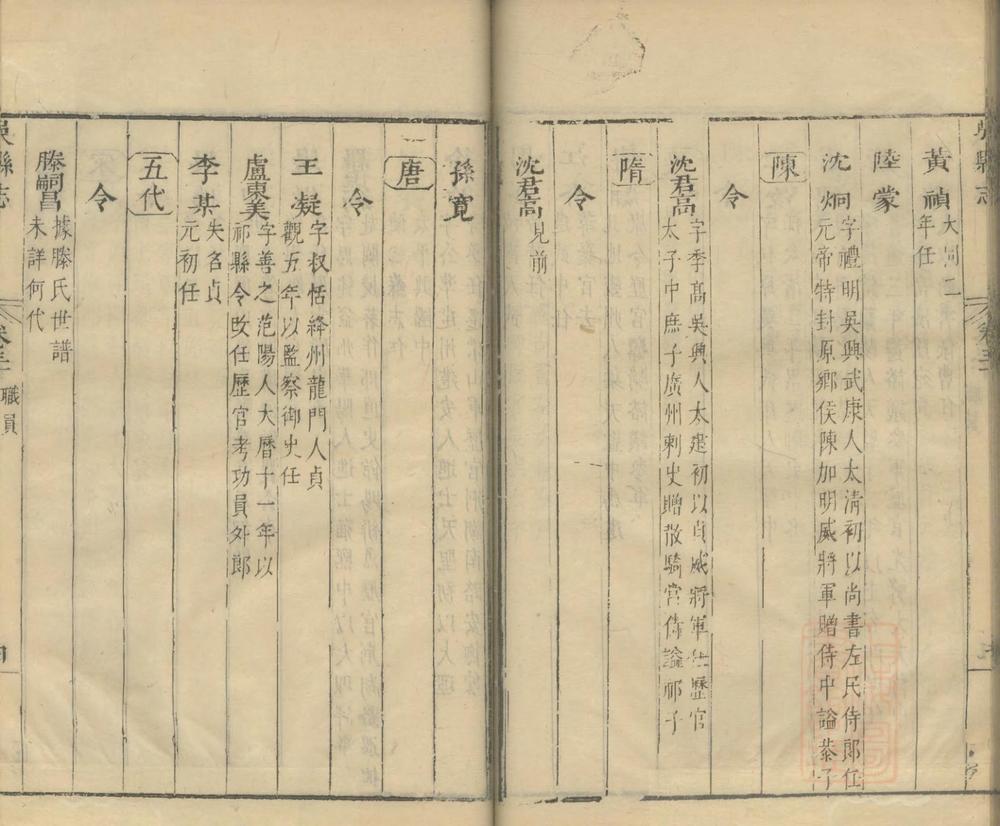 吳縣志
黃禎
大同二
年任
陸蒙
沈炯
字禮明吳興武康人太清初以尚書左民侍郎任
元帝特封原鄉侯陳加明威將軍贈侍中謚恭子
陳
令
沈君高
字季高吳興人太建初以貞威將軍任歷官
太子中庶子廣州刺史贈散騎常侍謚祁子
隋
令
沈君高
見前
孫寬
唐
令
王凝
字叔恬絳州龍門人貞
觀五年以監察御史任
盧東美
字善之范陽人大曆十一年以
祁縣令改任歷官考功員外郎
李某
失名貞
元初任
五代
令
滕嗣昌
據滕氏世譜
未詳何代
吳縣志
職員